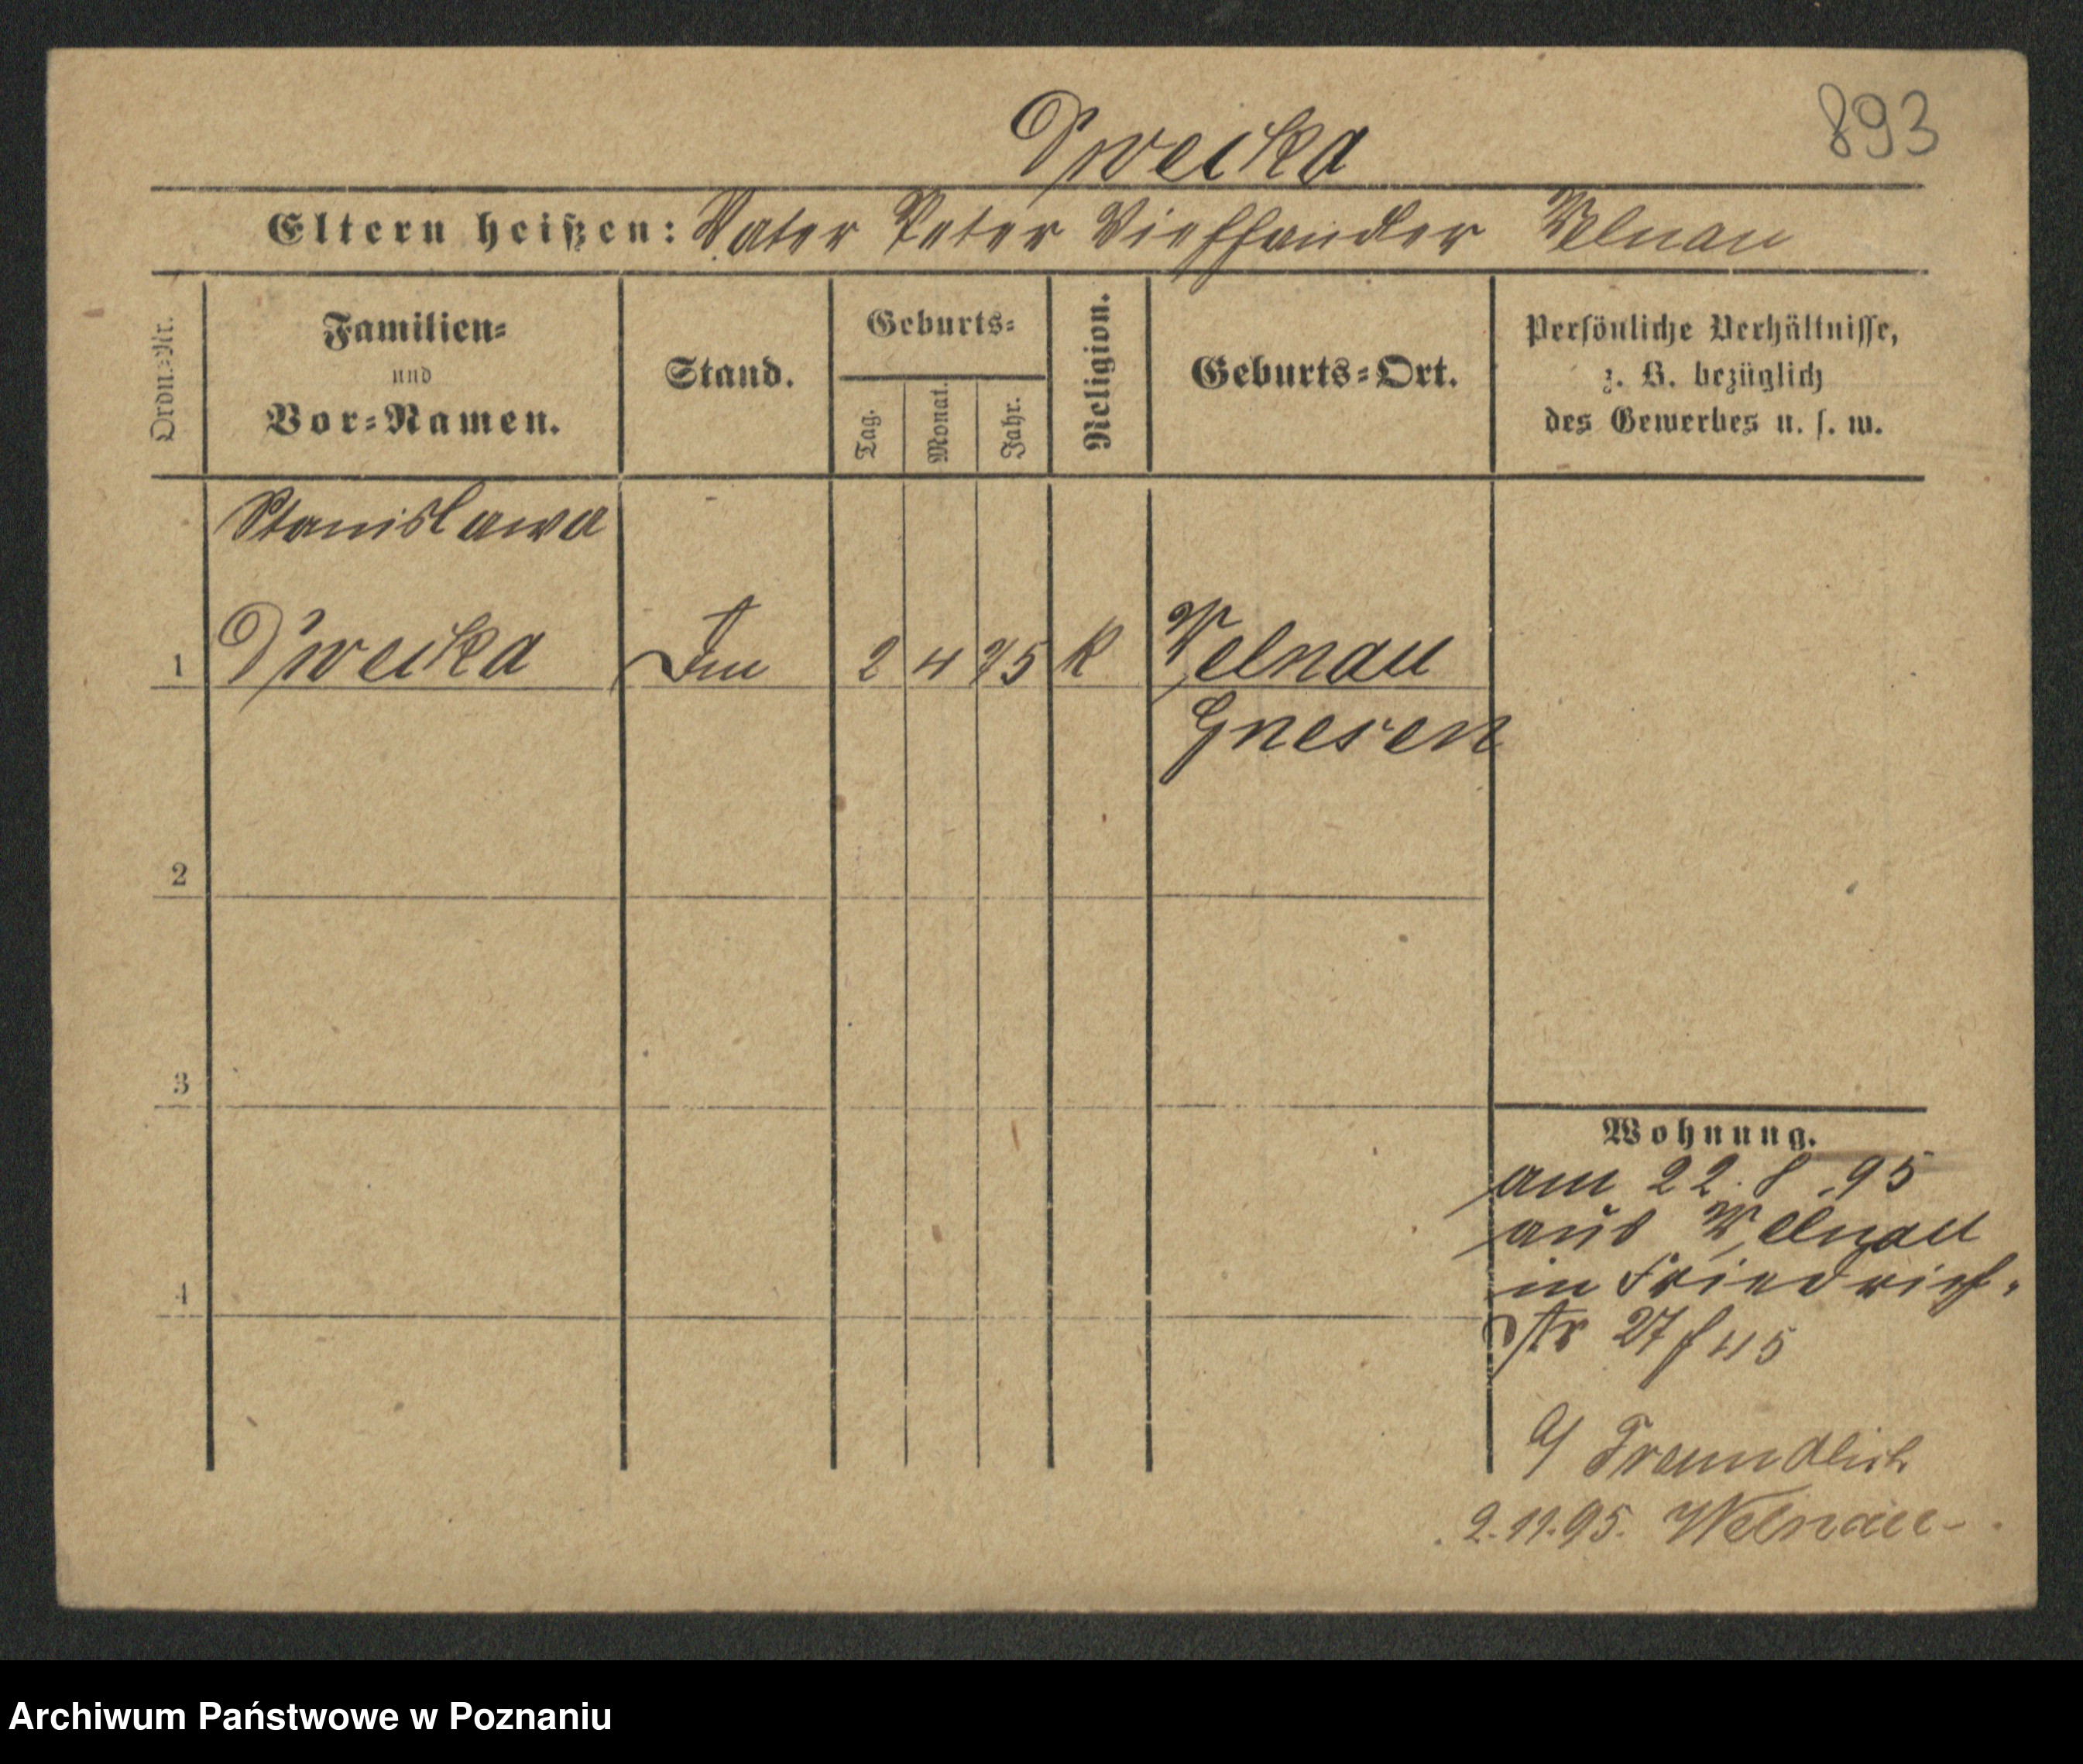 893
Dweika
Eltern heißen: Vater Peter Viehhändler Welnau
Ordn.=Nr.
Familien=
und
Vor=Namen.
Stand.
Geburts=
Tag.
Monat.
Jahr.
Religion.
Geburts=Ort.
Persönliche Verhältnisse,
z. B. bezüglich
des Gewerbes u. s. w.
Stanislawa
1 Dweika 2 4 75 K Welnau
Gnesen
2
3
4
Wohnung.
am 22. 8. 95
aus Welnau
in Friedrich-
str 27
Freundlich
2.11.95. Welnau-
Archiwum Państwowe w Poznaniu